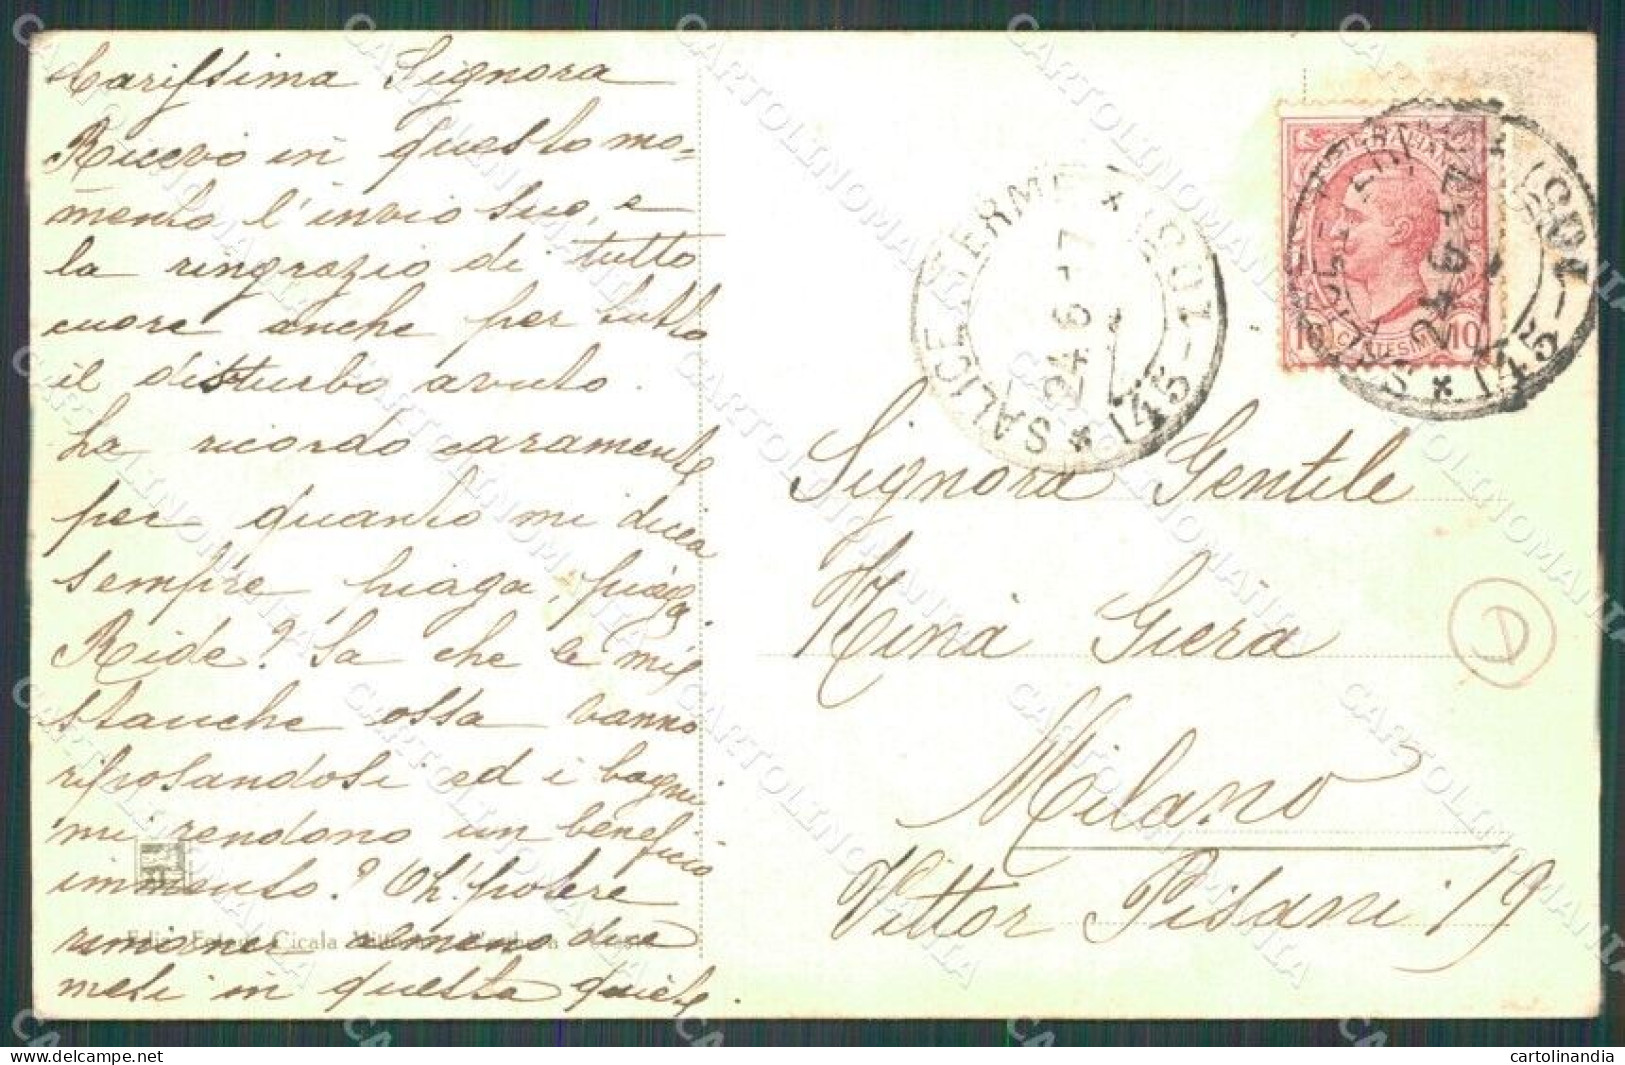 Carissima Signora
Ricevo in questo mo-
mento l'invio suo, e
la ringrazio di tutto
cuore anche per tutto
il disturbo avuto.
La ricordo caramente
per quanto mi dica
sempre piaga, piaga.
Ride? Sa che le mie
stanche ossa vanno
riposandosi ed i bagni
mi rendono un beneficio
immenso? Oh! potere
rimaner almeno due
mesi in questa quiete.
Ediz. Fotogr. Cicala
SALICE TERME
24.6-17
Signora Gentile
Nina Giera
Milano
Vittor Pisani 19
10 CENTESIMI 10
CARTOLINOMANIA
delcampe.net
cartolinandia